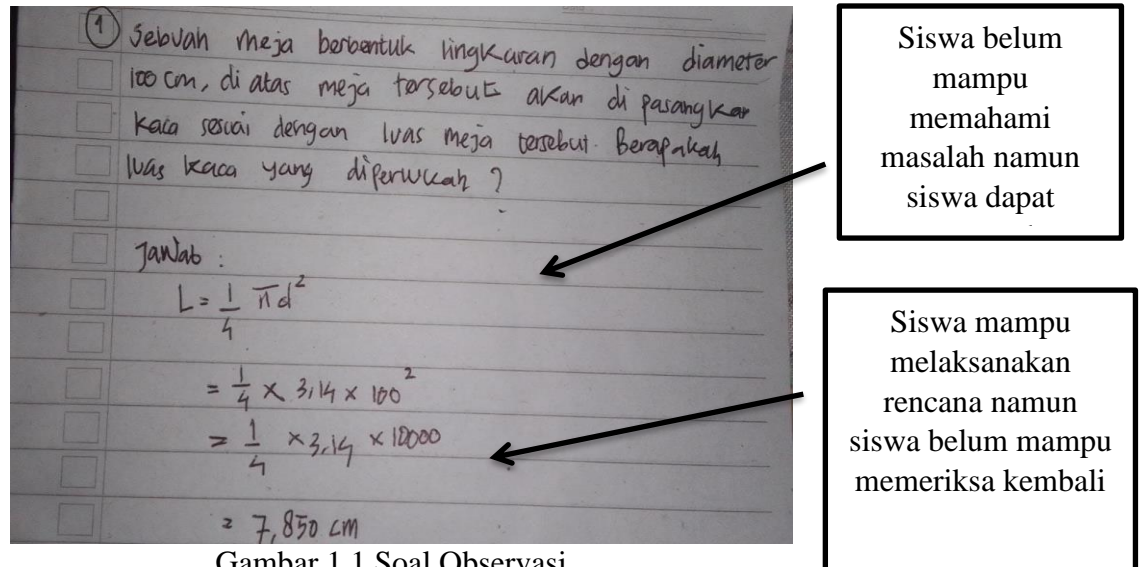 1 Sebuah meja berbentuk lingkaran dengan diameter
100 cm, di atas meja tersebut akan di pasangkan
kaca sesuai dengan luas meja tersebut. Berapakah
luas kaca yang diperlukan ?
Jawab :
L = 1/4 πd²
= 1/4 × 3,14 × 100²
= 1/4 × 3,14 × 10000
= 7,850 cm
Siswa belum
mampu
memahami
masalah namun
siswa dapat
Siswa mampu
melaksanakan
rencana namun
siswa belum mampu
memeriksa kembali
Gambar 1.1 Soal Observasi